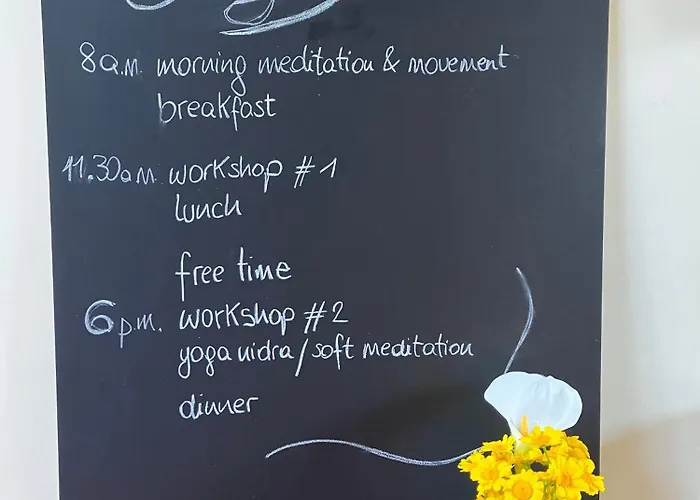 8a.m. morning meditation & movement
breakfast
11.30a.m. workshop #1
lunch
free time
6p.m. workshop #2
yoga nidra/soft meditation
dinner